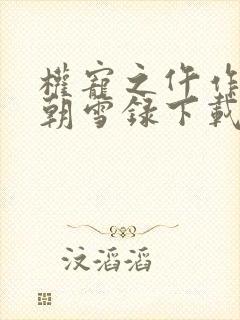 權寵之仵作
朝雪録下載
汶滔滔